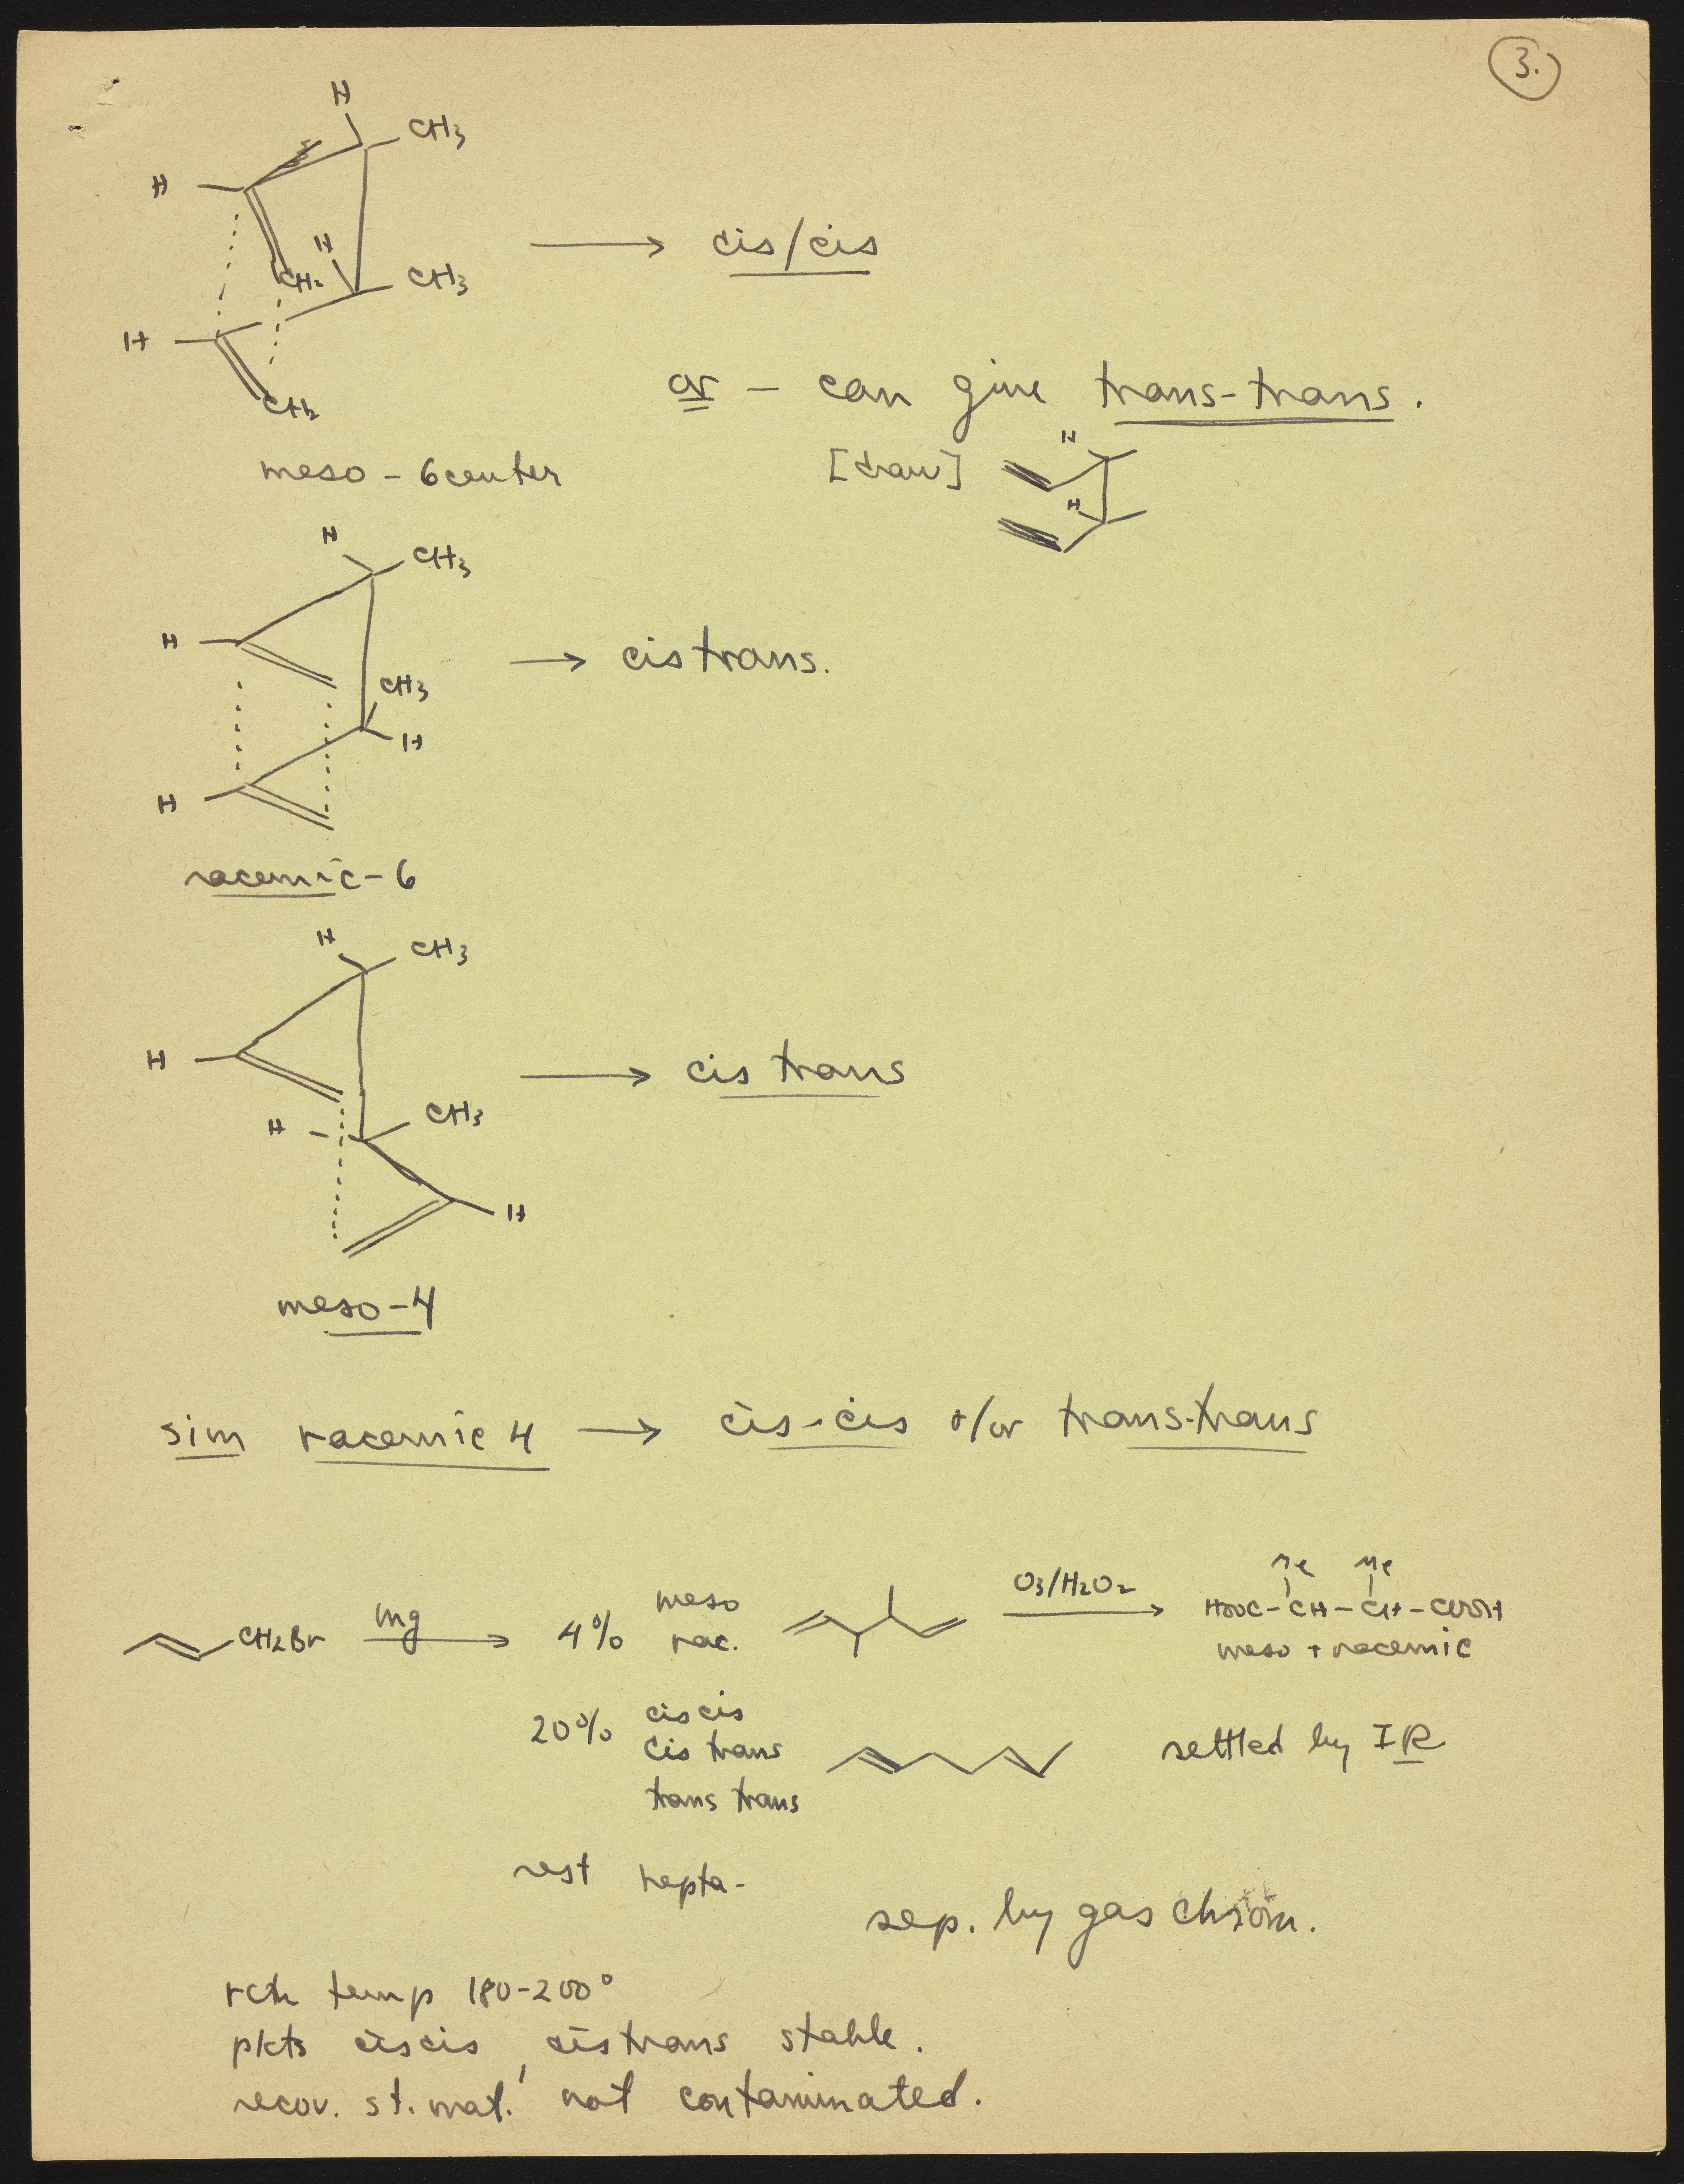 3.
H
CH3
H
H
CH2
CH3
→ cis/cis
H
CH2
or – can give trans-trans.
meso - 6center
[draw]
H
H
H
CH3
H
CH3
H
→ cis trans.
H
racemic - 6
H
CH3
H
H
CH3
→ cis trans
H
meso - 4
sim racemic 4 → cis-cis &/or trans-trans
CH2Br
Mg
→
4% meso
rac.
O3/H2O2
→
Me Me
HOOC-CH-CH-COOH
meso + racemic
20% cis cis
cis trans
trans trans
settled by IR
rest hepta-
sep. by gas chrom.
rctn temp 180-200°
pdts ciscis, cistrans stable.
recov. st. mat. not contaminated.